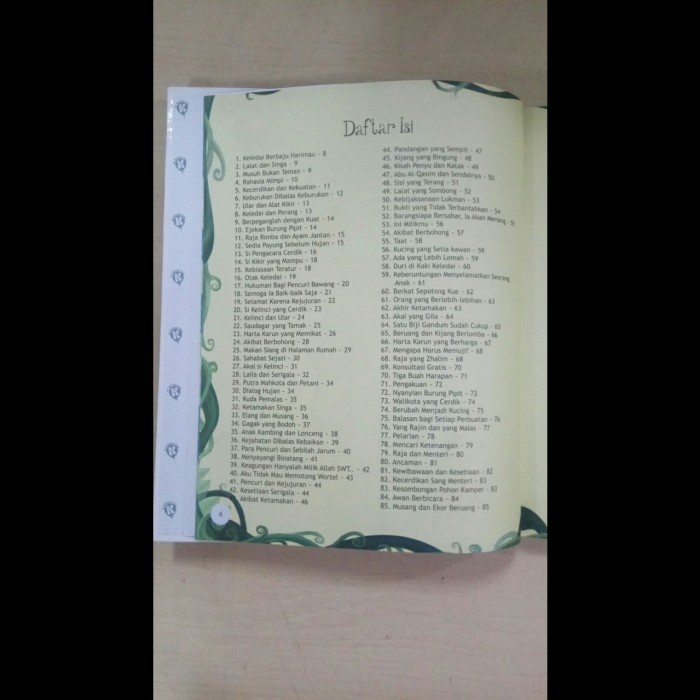 Daftar Isi
1. Keledai Berbaju Harimau - 8
2. Lalat dan Singa - 9
3. Musuh Bukan Teman - 9
4. Rahasia Mimpi - 10
5. Kecerdikan dan Kekuatan - 11
6. Keburukan Dibalas Keburukan - 12
7. Ular dan Alat Kikir - 13
8. Keledai dan Perang - 13
9. Berpeganglah dengan Kuat - 14
10. Ejekan Burung Pipit - 14
11. Raja Rimba dan Ayam Jantan - 15
12. Sedia Payung Sebelum Hujan - 15
13. Si Pengacara Cerdik - 16
14. Si Kikir yang Mampu - 18
15. Kebiasaan Teratur - 18
16. Otak Keledai - 19
17. Hukuman Bagi Pencuri Bawang - 20
18. Semoga Ia Baik-baik Saja - 21
19. Selamat Karena Kejujuran - 22
20. Si Kelinci yang Cerdik - 23
21. Kelinci dan Ular - 24
22. Saudagar yang Tamak - 25
23. Harta Karun yang Memikat - 26
24. Akibat Berbohong - 28
25. Makan Siang di Halaman Rumah - 29
26. Sahabat Sejati - 30
27. Akal si Kelinci - 31
28. Laila dan Serigala - 32
29. Putra Mahkota dan Petani - 34
30. Dialog Hujan - 34
31. Kuda Pemalas - 35
32. Ketamakan Singa - 35
33. Elang dan Musang - 36
34. Gagak yang Bodoh - 37
35. Anak Kambing dan Lonceng - 38
36. Kejahatan Dibalas Kebaikan - 39
37. Para Pencuri dan Sebilah Jarum - 40
38. Menyayangi Binatang - 41
39. Keagungan Hanyalah Milik Allah SWT.. - 42
40. Aku Tidak Mau Memotong Wortel - 43
41. Pencuri dan Kejujuran - 44
42. Kesetiaan Serigala - 44
Akibat Ketamakan - 46
4
44. Pandangan yang Sempit - 47
45. Kijang yang Bingung - 48
46. Kisah Penyu dan Katak - 49
47. Abu Al-Qasim dan Sendalnya - 50
48. Sisi yang Terang - 51
49. Lalat yang Sombong - 52
50. Kebijaksanaan Lukman - 53
51. Bukti yang Tidak Terbantahkan - 54
52. Barangsiapa Bersabar, Ia Akan Menang - 55
53. Ini Milikmu - 56
54. Akibat Berbohong - 57
55. Taat - 58
56. Kucing yang Setia kawan - 59
57. Ada yang Lebih Lemah - 59
58. Duri di Kaki Keledai - 60
59. Keberuntungan Menyelamatkan Seorang
Anak - 61
60. Berkat Sepotong Kue - 62
61. Orang yang Berlebih-lebihan - 63
62. Akhir Ketamakan - 63
63. Akal yang Gila - 64
64. Satu Biji Gandum Sudah Cukup - 65
65. Beruang dan Kijang Berlomba - 66
66. Harta Karun yang Berharga - 67
67. Mengapa Harus Memuji? - 68
68. Raja yang Zhalim - 68
69. Konsultasi Gratis - 70
70. Tiga Buah Harapan - 71
71. Pengakuan - 72
72. Nyanyian Burung Pipit - 72
73. Walikota yang Cerdik - 74
74. Berubah Menjadi Kucing - 75
75. Balasan bagi Setiap Perbuatan - 76
76. Yang Rajin dan yang Malas - 77
77. Pelarian - 78
78. Mencari Ketenangan - 79
79. Raja dan Menteri - 80
80. Ancaman - 81
81. Kewibawaan dan Kesetiaan - 82
82. Kecerdikan Sang Menteri - 83
83. Kesombongan Pohon Kamper - 83
84. Awan Berbicara - 84
85. Musang dan Ekor Beruang - 85